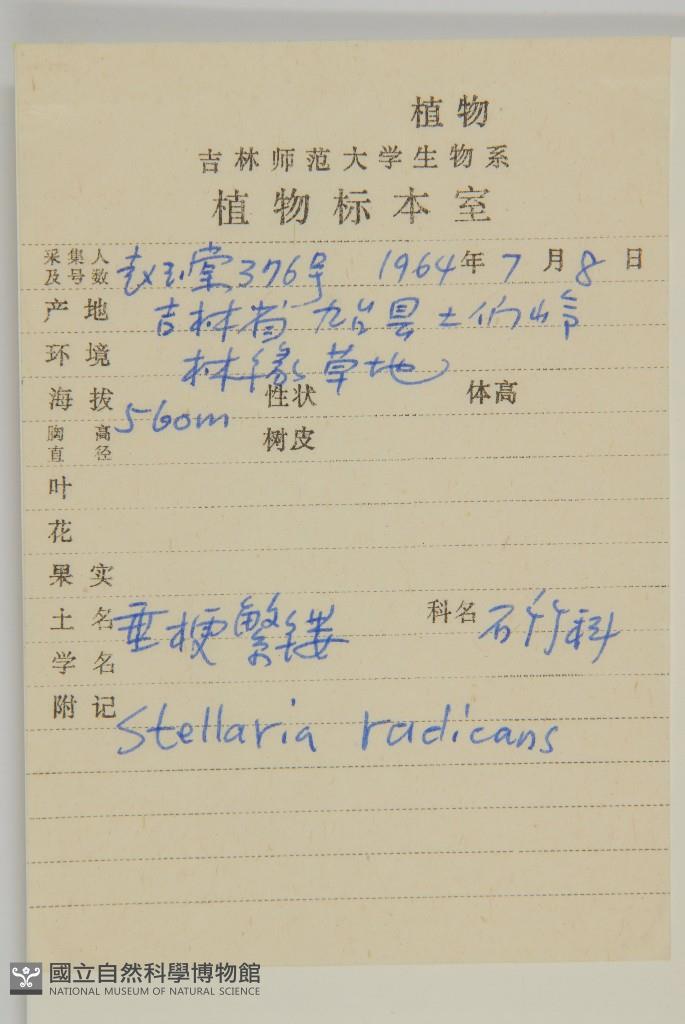 植物
吉林师范大学生物系
植物标本室
采集人及号数 赵玉堂376号 1964年7月8日
产地 吉林省九台县土们岭
环境 林缘草地
海拔 560m 性状 体高
胸高直径 树皮
叶
花
果实
土名 垂梗繁镂 科名 石竹科
学名
附记 Stellaria radicans
國立自然科學博物館
NATIONAL MUSEUM OF NATURAL SCIENCE